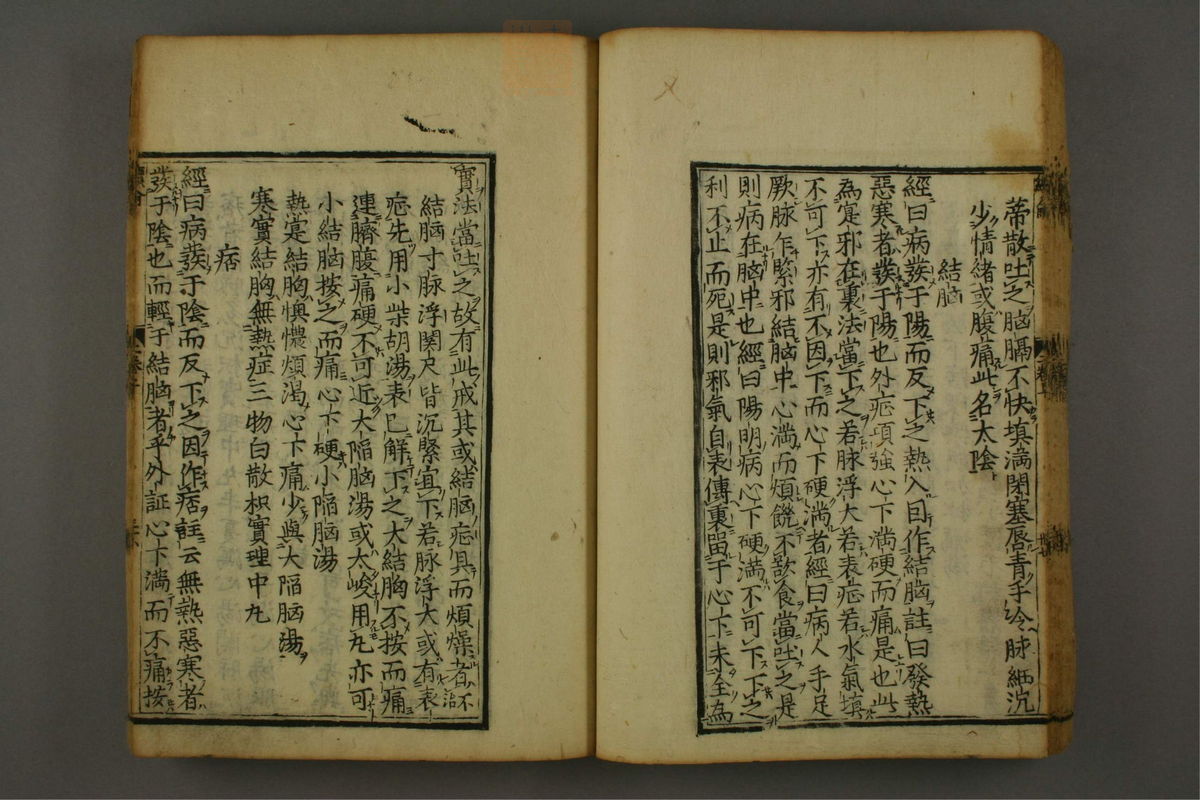 蒂散吐之脳膈不快填満閉塞唇青手冷脉細沉
少情緒或腹痛此名太陰
結脳
經曰病發于陽而反下之熱入因作結脳註曰發熱
惡寒者發于陽也外症項強心下満硬而痛是也此
為寔邪在裏法當下之若脉浮大若表症若水氣填
不可下亦有不因下而心下硬満者經曰病人手足
厥脉乍緊邪結脳中心満而煩饑不欲食當吐之是
則病在脳中也經曰陽明病心下硬満不可下下之
利不止而死是則邪氣自表傳裏留于心下未全為
實法當吐之故有此戒其或結脳症具而煩燥者不治
結脳寸脉浮関尺皆沉緊宜下若脉浮大或有表
症先用小柴胡湯表已解下之大結胸不按而痛
連臍腹痛硬不可近大陥脳湯或太峻用丸亦可
小結脳按之而痛心下硬小陥脳湯
熱寔結胸懊憹煩渴心下痛少與大陥脳湯
寒實結胸無熱症三物白散枳實理中丸
痞
經曰病發于陰而反下之因作痞註云無熱惡寒者
發于陰也而輕于結脳者乎外証心下満而不痛按